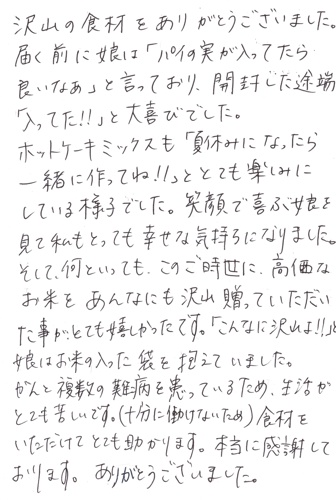 沢山の食材をありがとうございました。
届く前に娘は「パイの実が入ってたら
良いなあ」と言っており、開封した途端
「入ってた!!」と大喜びでした。
ホットケーキミックスも「夏休みになったら
一緒に作ってね!!」ととても楽しみに
している様子でした。笑顔で喜ぶ娘を
見て私もとっても幸せな気持ちになりました。
そして、何といっても、このご時世に、高価な
お米をあんなにも沢山贈っていただい
た事がとても嬉しかったです。「こんなに沢山よ!!」と
娘はお米の入った袋を抱えていました。
がんと複数の難病を患っているため、生活が
とても苦しいです。(十分に働けないため)食材を
いただけてとても助かります。本当に感謝して
おります。ありがとうございました。